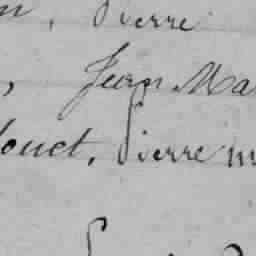 Pierre
, Jean Ma
ouet, Pierre m